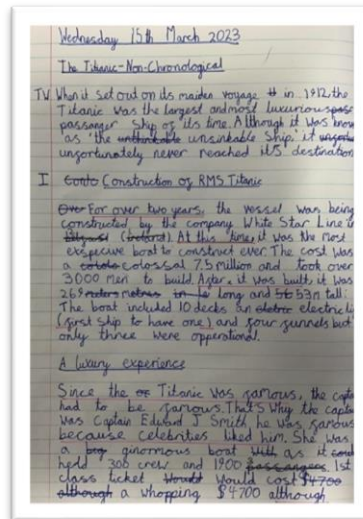 Wednesday 15th March 2023
The Titanic-Non-Chronological
TW When it set out on its maiden voyage it in 1912, the
Titanic was the largest and most luxurious
passanger ship of its time. Although it was know
as 'the unsinkable ship' it
unfortunately never reached its destination
I Construction of RMS Titanic
For over two years, the vessel was being
constructed by the company White Star Line in
(Ireland). At this time, it was the most
expecive boat to construct ever. The cost was
a colossal 7.5 million and took over
3000 men to build. After, it was built, it was
269 metres long and 53m tall.
The boat included 10 decks an electricity
(first ship to have one) and four funnels but
only three were opperational.
A luxury experience
Since the Titanic was famous, the capta
had to be famous. That's why the capta
was Captain Edward J Smith he was famous
because celebrities liked him. She was
a ginormous boat with as it
held 300 crew and 1900 passangers. 1st
class ticket would cost $4700
although a whopping $4700 although